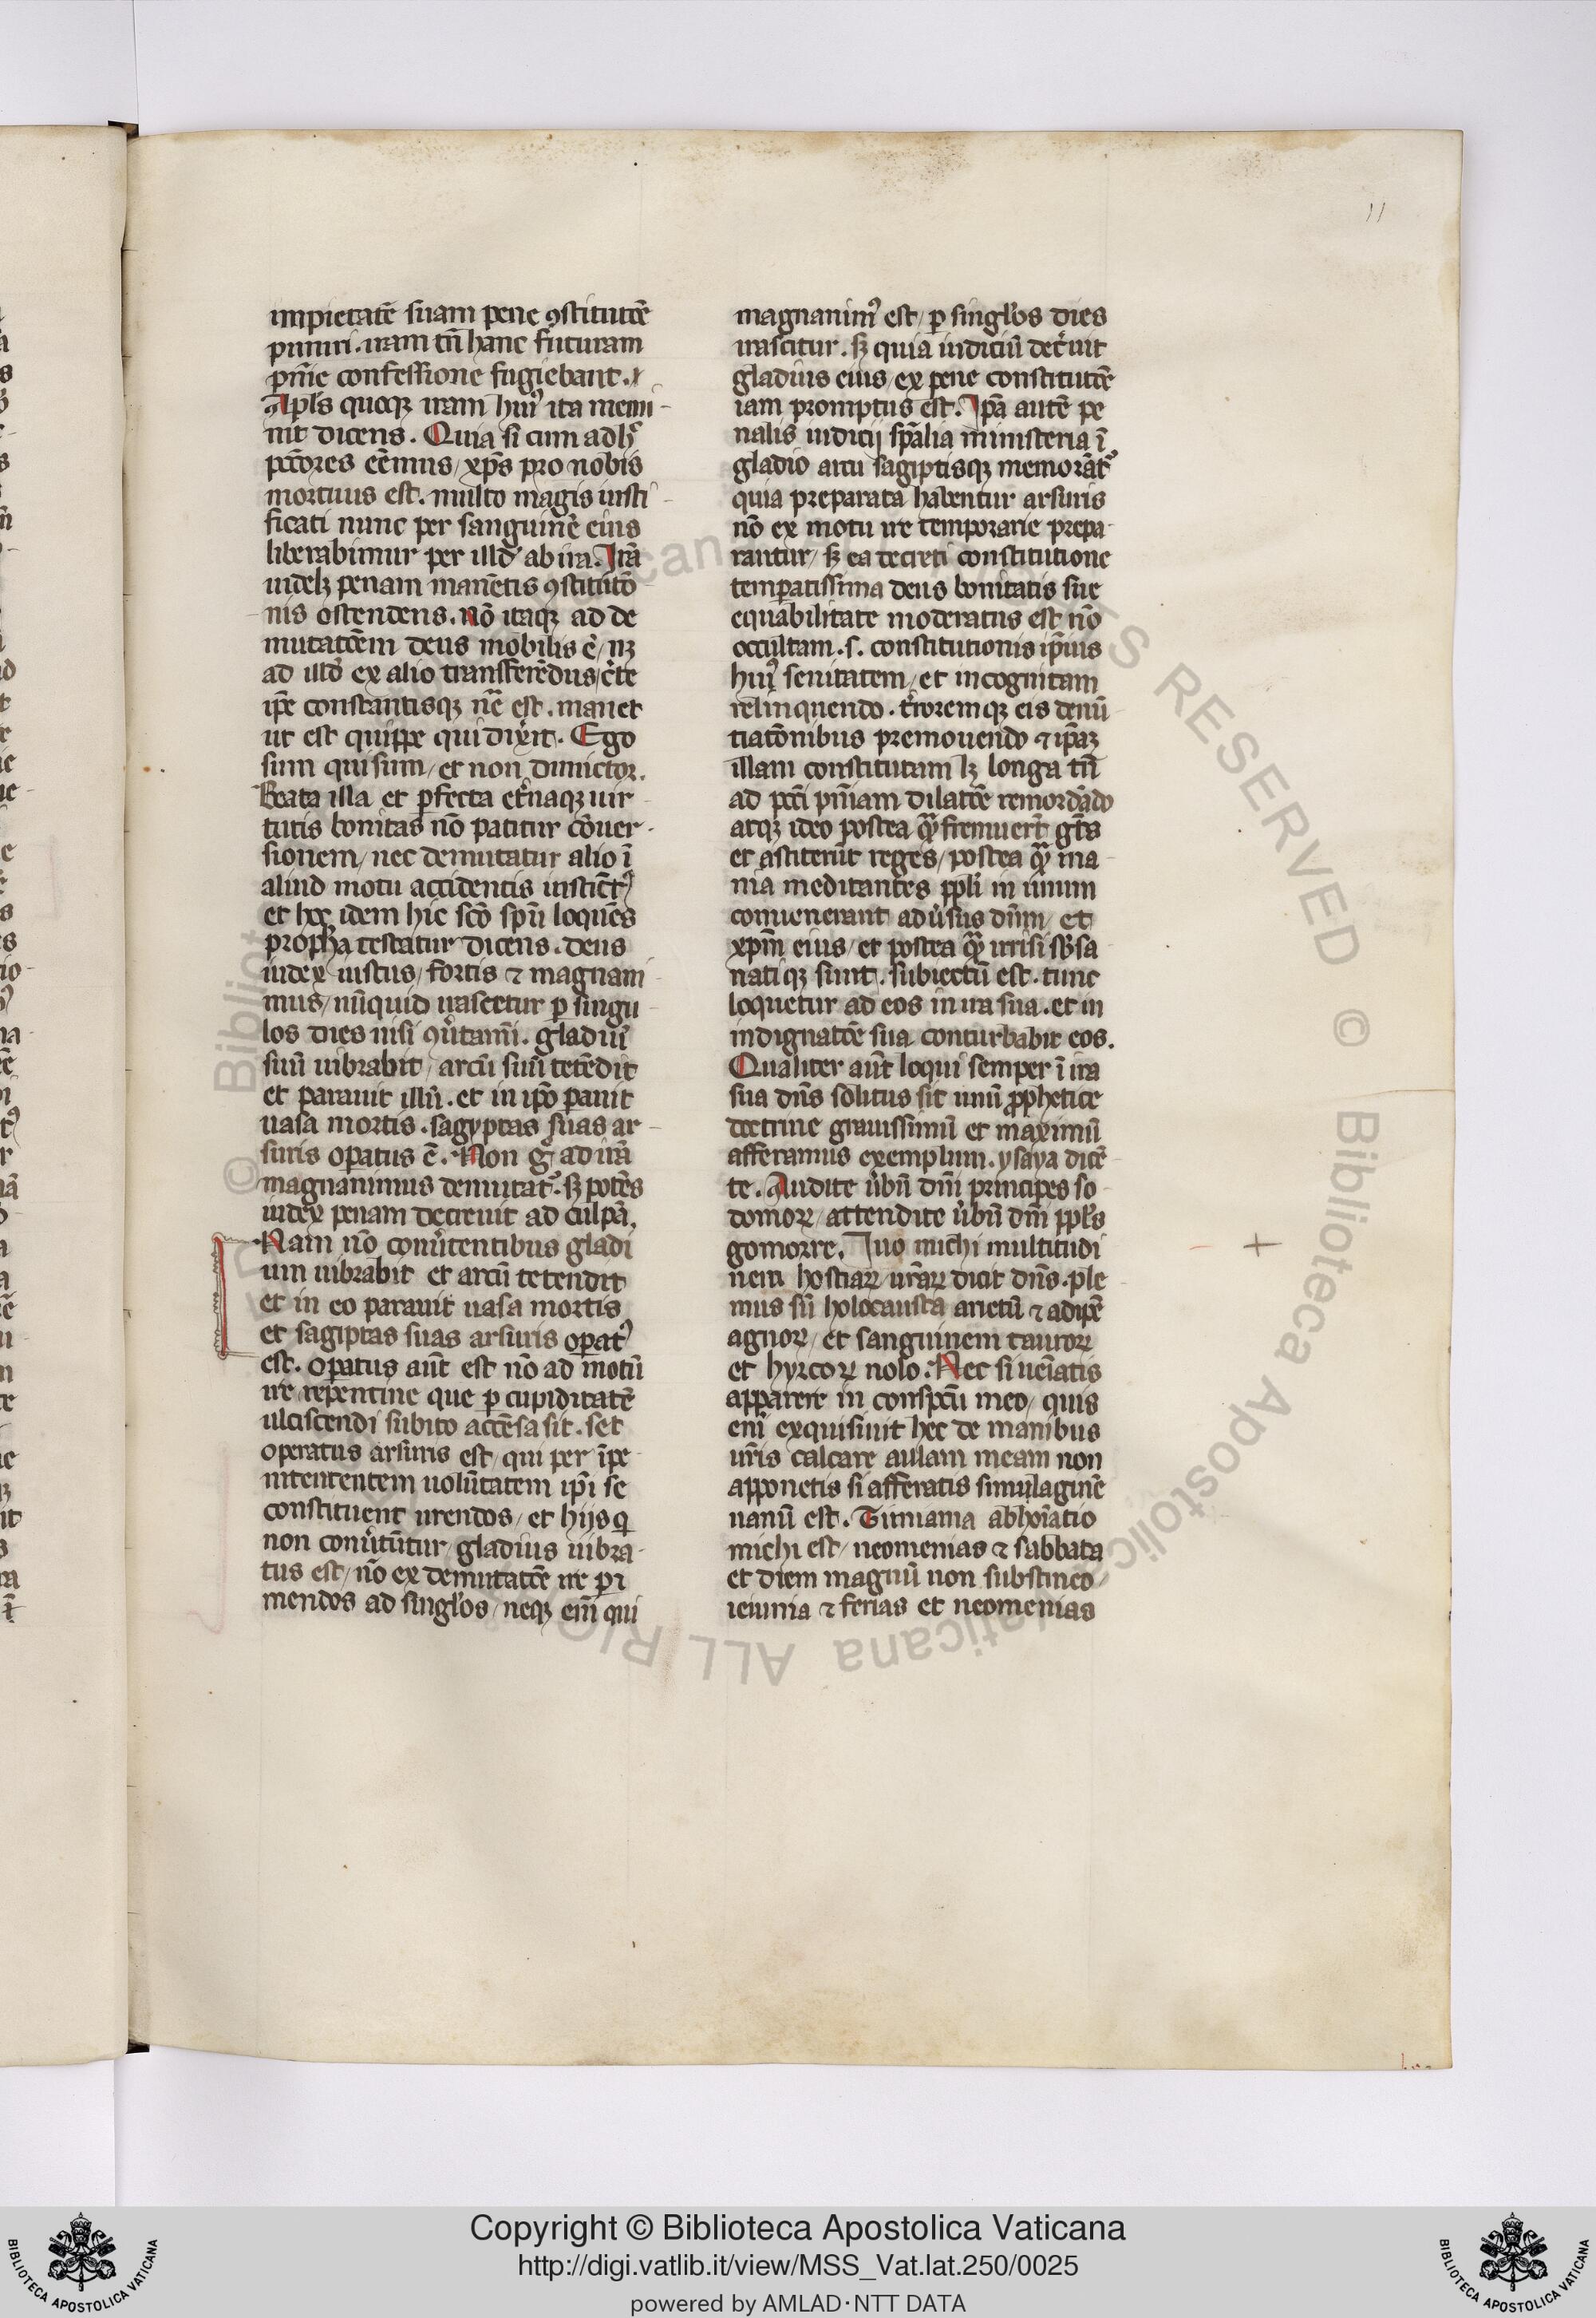 11
impietatē suam pene ꝯstitutōē
puniri. iram tn̄ hanc futuram
pn̄ie confessione fugiebant.
Apl's quoqꝫ iram huiꝰ ita memi-
nit dicens. Quia si cum adhᶜ
pctōres eēmus/ xp̄s pro nobis
mortuus est. multo magis iusti-
ficati nunc per sanguinē eius
liberabimur per illū ab ira. Irā
uidelꝫ penam manētis ꝯstitutō-
nis ostendens. Nō itaqꝫ ad de
mutatōēm deus mobilis ē/ nꝫ
ad illd̄ ex alio transferēdus/ c̄te
ip̄e constantisqꝫ nē est. manet
ut est quippe qui dixit. Ego
sum qui sum/ et non dimictor.
Beata illa et ꝑfecta et̄naqꝫ uir
tutis bonitas nō patitur cōuer-
sionem/ nec demutatur alio ī
aliud motu accidentis instīctꝰ
et hec idem hic scō spū loquēs
propha testatur dicens. deus
iudex iustus/ fortis ⁊ magnani-
mus/ nūquid irascetur ꝑ singu-
los dies nisi ꝯu̓tamī. gladiuꝫ
suū uibrabit/ arcū suū tetēdit
et parauit illū. et in ipō ꝑauit
uasa mortis. sagyptas suas ar-
suris oꝑatus ē. Non g̊ ad irā
magnanimus demutat᷑. sꝫ potēs
iudex penam decreuit ad culpā.
Nam nō conu̓tentibus gladi
um uibrabit et arcū tetendit
et in eo parauit uasa mortis
et sagiptas suas arsuris oꝑatꝰ
est. Oꝑatus aūt est nō ad motū
ire repentine que ꝑ cupiditatē
ulciscendi subito accēsa sit. set
operatus arsuris est/ qui per īpe
nitentem uolūtatem ip̄i se
constituent urendos/ et hijs q̄
non conu̓tūtur/ gladius uibra-
tus est/ nō ex demutatōē ire ꝑi
mendos ad singl'os/ neqꝫ eni̅ qui
magnanimꝰ est/ ꝑ singl'os dies
irascitur. sꝫ quia iudiciū dec̓uit
gladius eius/ ex pene constitutōē
iam promptus est. Ipā autē pe
nalis iudicij spālia ministeria ī
gladio arcu sagiptisqꝫ memorāt᷑
quia preparata habentur arsuris
nō ex motu ire temporarie prepa-
rantur/ sꝫ ea decreti constitutione
temꝑatissima deus bonitatis sue
equabilitate moderatus est nō
occultam. s. constitutionis ip̄ius
huiꝰ seuitatem/ et incognitam
relinquendo. t̓roremqꝫ eis denū
tiatōnibus premouendo ⁊ ip̄aꝫ
illam constitutam lꝫ longa tn̄
ad pcti pn̄iam dilatōē remordēdo
atqꝫ ideo postea qᷓꝫ fremuert̄ gētes
et astiterūt reges/ postea qᷓꝫ ina
nia meditantes ppl'i in unum
conuenerant adu̓sus dn̄m/ et
xp̄m eius/ et postea qᷓꝫ irrisi sb̓sa
natiqꝫ sunt. subiectū est. tunc
loquetur ad eos in ira sua. et in
indignatōē sua conturbabit eos.
Qualiter aūt loqui semper ī ira
sua dn̄s solitus sit unū ꝓphetice
doctrine grauissimū et maximū
afferamus exemplum. ysaya dicē-
te. Audite u̓bū dn̄i principes so
domoꝝ/ attendite u̓bū dn̄i ppl's
gomorre. Quo michi multitudi
nem hostiaꝝ ur̄aꝝ dicit dn̄s. ple
mus sū holocausta arietū ⁊ adipē
agnoꝝ/ et sanguinem tauroꝝ
et hyrcoꝝ nolo. Nec si ueīatis
apparere in conspcū meo/ quis
eni̅ exquisiuit hec de manibus
ur̄is calcare aulam meam non
apponetis si afferatis simulaginē
uanū est. Timiama abhoīatio
michi est/ neomenias ⁊ sabbata
et diem magnū non substineo/
ieiunia ⁊ ferias et neomenias
Copyright © Biblioteca Apostolica Vaticana
http://digi.vatlib.it/view/MSS_Vat.lat.250/0025
powered by AMLAD·NTT DATA
BIBLIOTECA APOSTOLICA VATICANA
BIBLIOTECA APOSTOLICA VATICANA